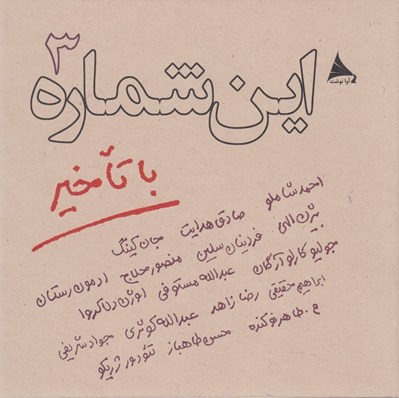 ۳
آوا نوشت
این شماره
با تأخیر
احمد شاملو صادق هدایت جان کینگ
بیژن الهی فردینان سلین منصور حلاج ادمون رستان
جولیو کارلو آرگان عبدالله مستوفی اوژن دلاکروا
ابراهیم حقیقی رضا زاهد عبدالله کوثری جواد شریفی
ع. طاهر نوکنده محسن طاهباز تئودور ژریکو